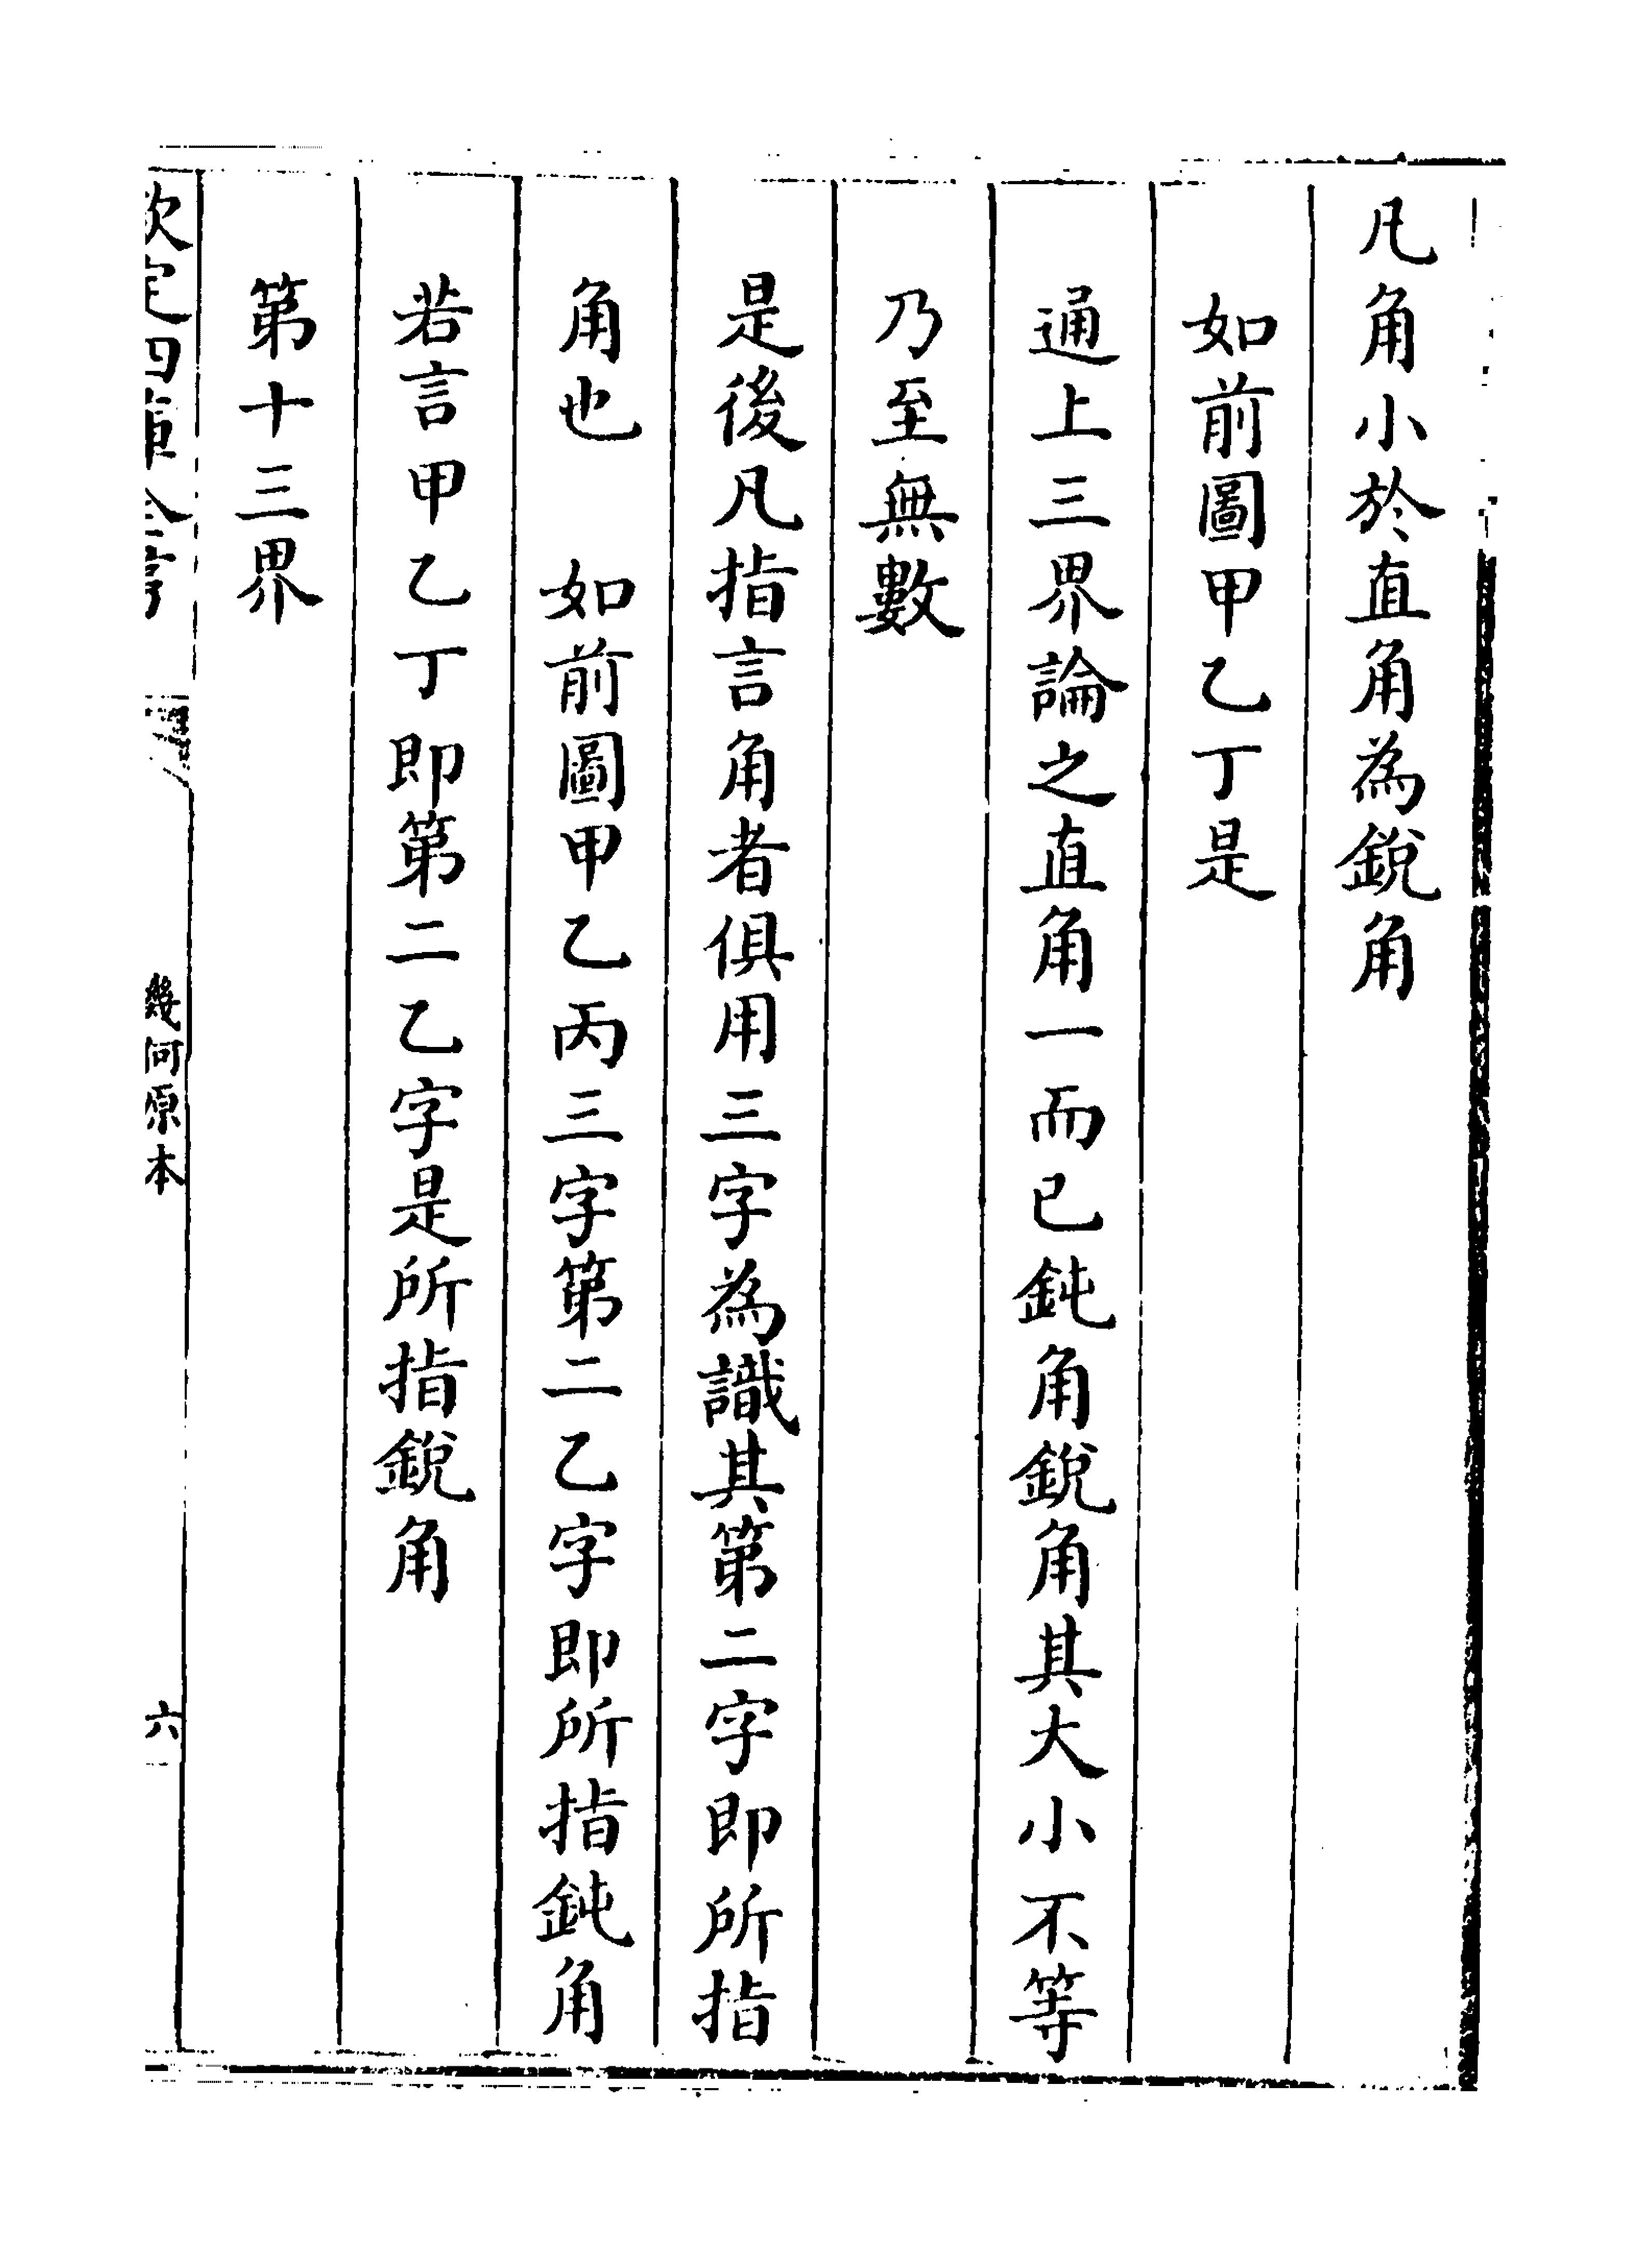 凡角小於直角為銳角
如前圖甲乙丁是
通上三界論之直角一而已鈍角銳角其大小不等
乃至無數
是後凡指言角者俱用三字為識其第二字即所指
角也　如前圖甲乙丙三字第二乙字即所指鈍角
若言甲乙丁即第二乙字是所指銳角
第十三界
欽定四庫全書
幾何原本
六